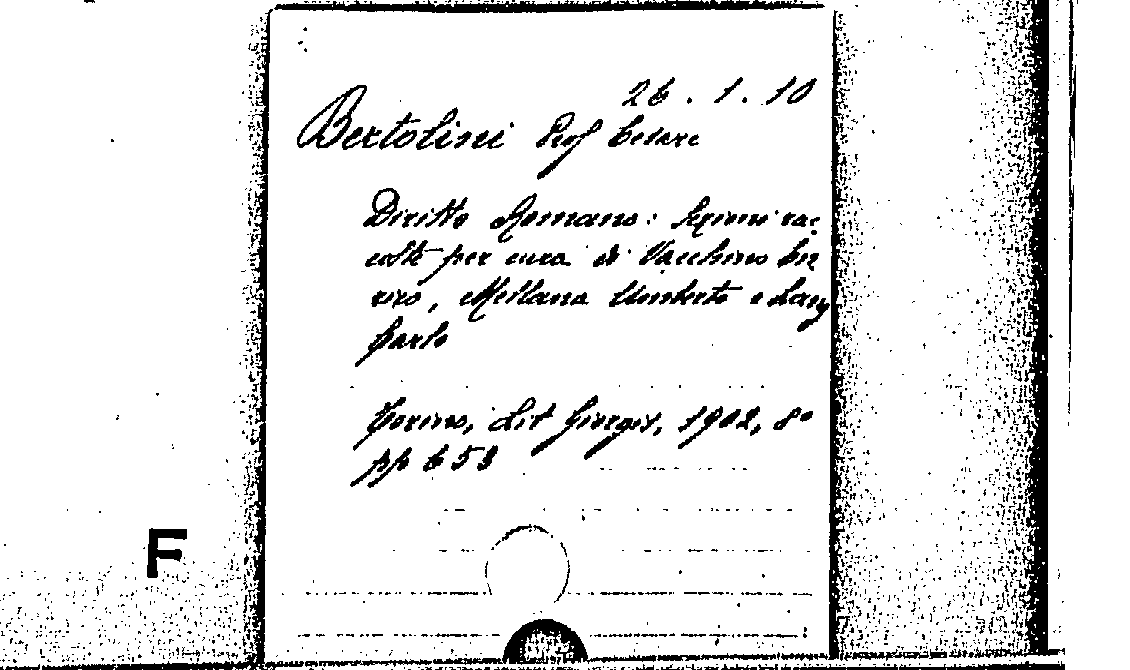 26.1.10
Bertolini Prof Cesare
Diritto Romano: Lezioni rac-
colte per cura di Vacchino En
rico, Mellana Umberto e
Carlo
Torino, Lit Giorgis, 1902, 8°
pp 653
F